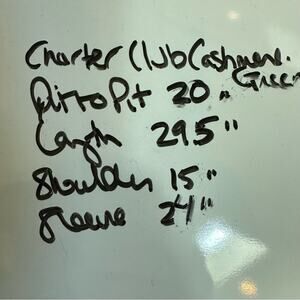 Charter Club Cashmere.
Green
Pit to Pit 20"
Length 29.5"
Shoulder 15"
Sleeve 24"